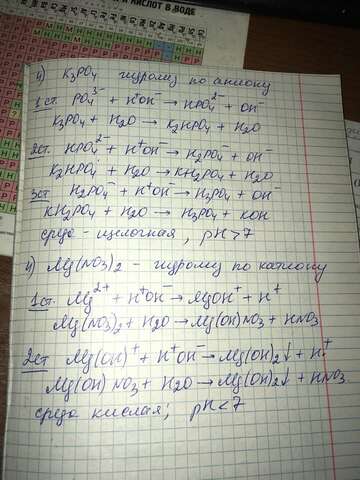 КИСЛОТ В ВОДЕ
4) K3PO4 гидролиз по аниону
1 ст. PO4^3- + H^+OH^- → HPO4^2- + OH^-
K3PO4 + H2O → K2HPO4 + H2O
2 ст. HPO4^2- + H^+OH^- → H2PO4^- + OH^-
K2HPO4 + H2O → KH2PO4 + H2O
3 ст. H2PO4^- + H^+OH^- → H3PO4 + OH^-
KH2PO4 + H2O → H3PO4 + KOH
среда - щелочная, pH>7
4) Mg(NO3)2 - гидролиз по катиону
1 ст. Mg^2+ + H^+OH^- → MgOH^+ + H^+
Mg(NO3)2 + H2O → Mg(OH)NO3 + HNO3
2 ст Mg(OH)^+ + H^+OH^- → Mg(OH)2↓ + H^+
Mg(OH)NO3 + H2O → Mg(OH)2↓ + HNO3
среда кислая, pH<7